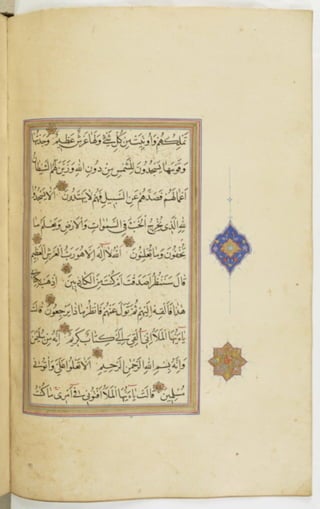 تملكهم وأوتيت من كل شئ ولها عرش عظيم وجدتها
وقومها يسجدون للشمس من دون الله وزين لهم الشيطان
اعمالهم فصدهم عن السبيل فهم لا يهتدون الا يسجدوا
لله الذي يخرج الخبء في السموات والارض ويعلم ما
تخفون وما تعلنون الله لا اله الا هو رب العرش العظيم
قال سننظر اصدقت ام كنت من الكاذبين اذهب بكتابي
هذا فالقه اليهم ثم تول عنهم فانظر ماذا يرجعون قالت
يا ايها الملأ اني القي الي كتاب كريم انه من سليمن
وانه بسم الله الرحمن الرحيم الا تعلوا علي وأتوني
مسلمين قالت يا ايها الملأ افتوني في امري ما كنت